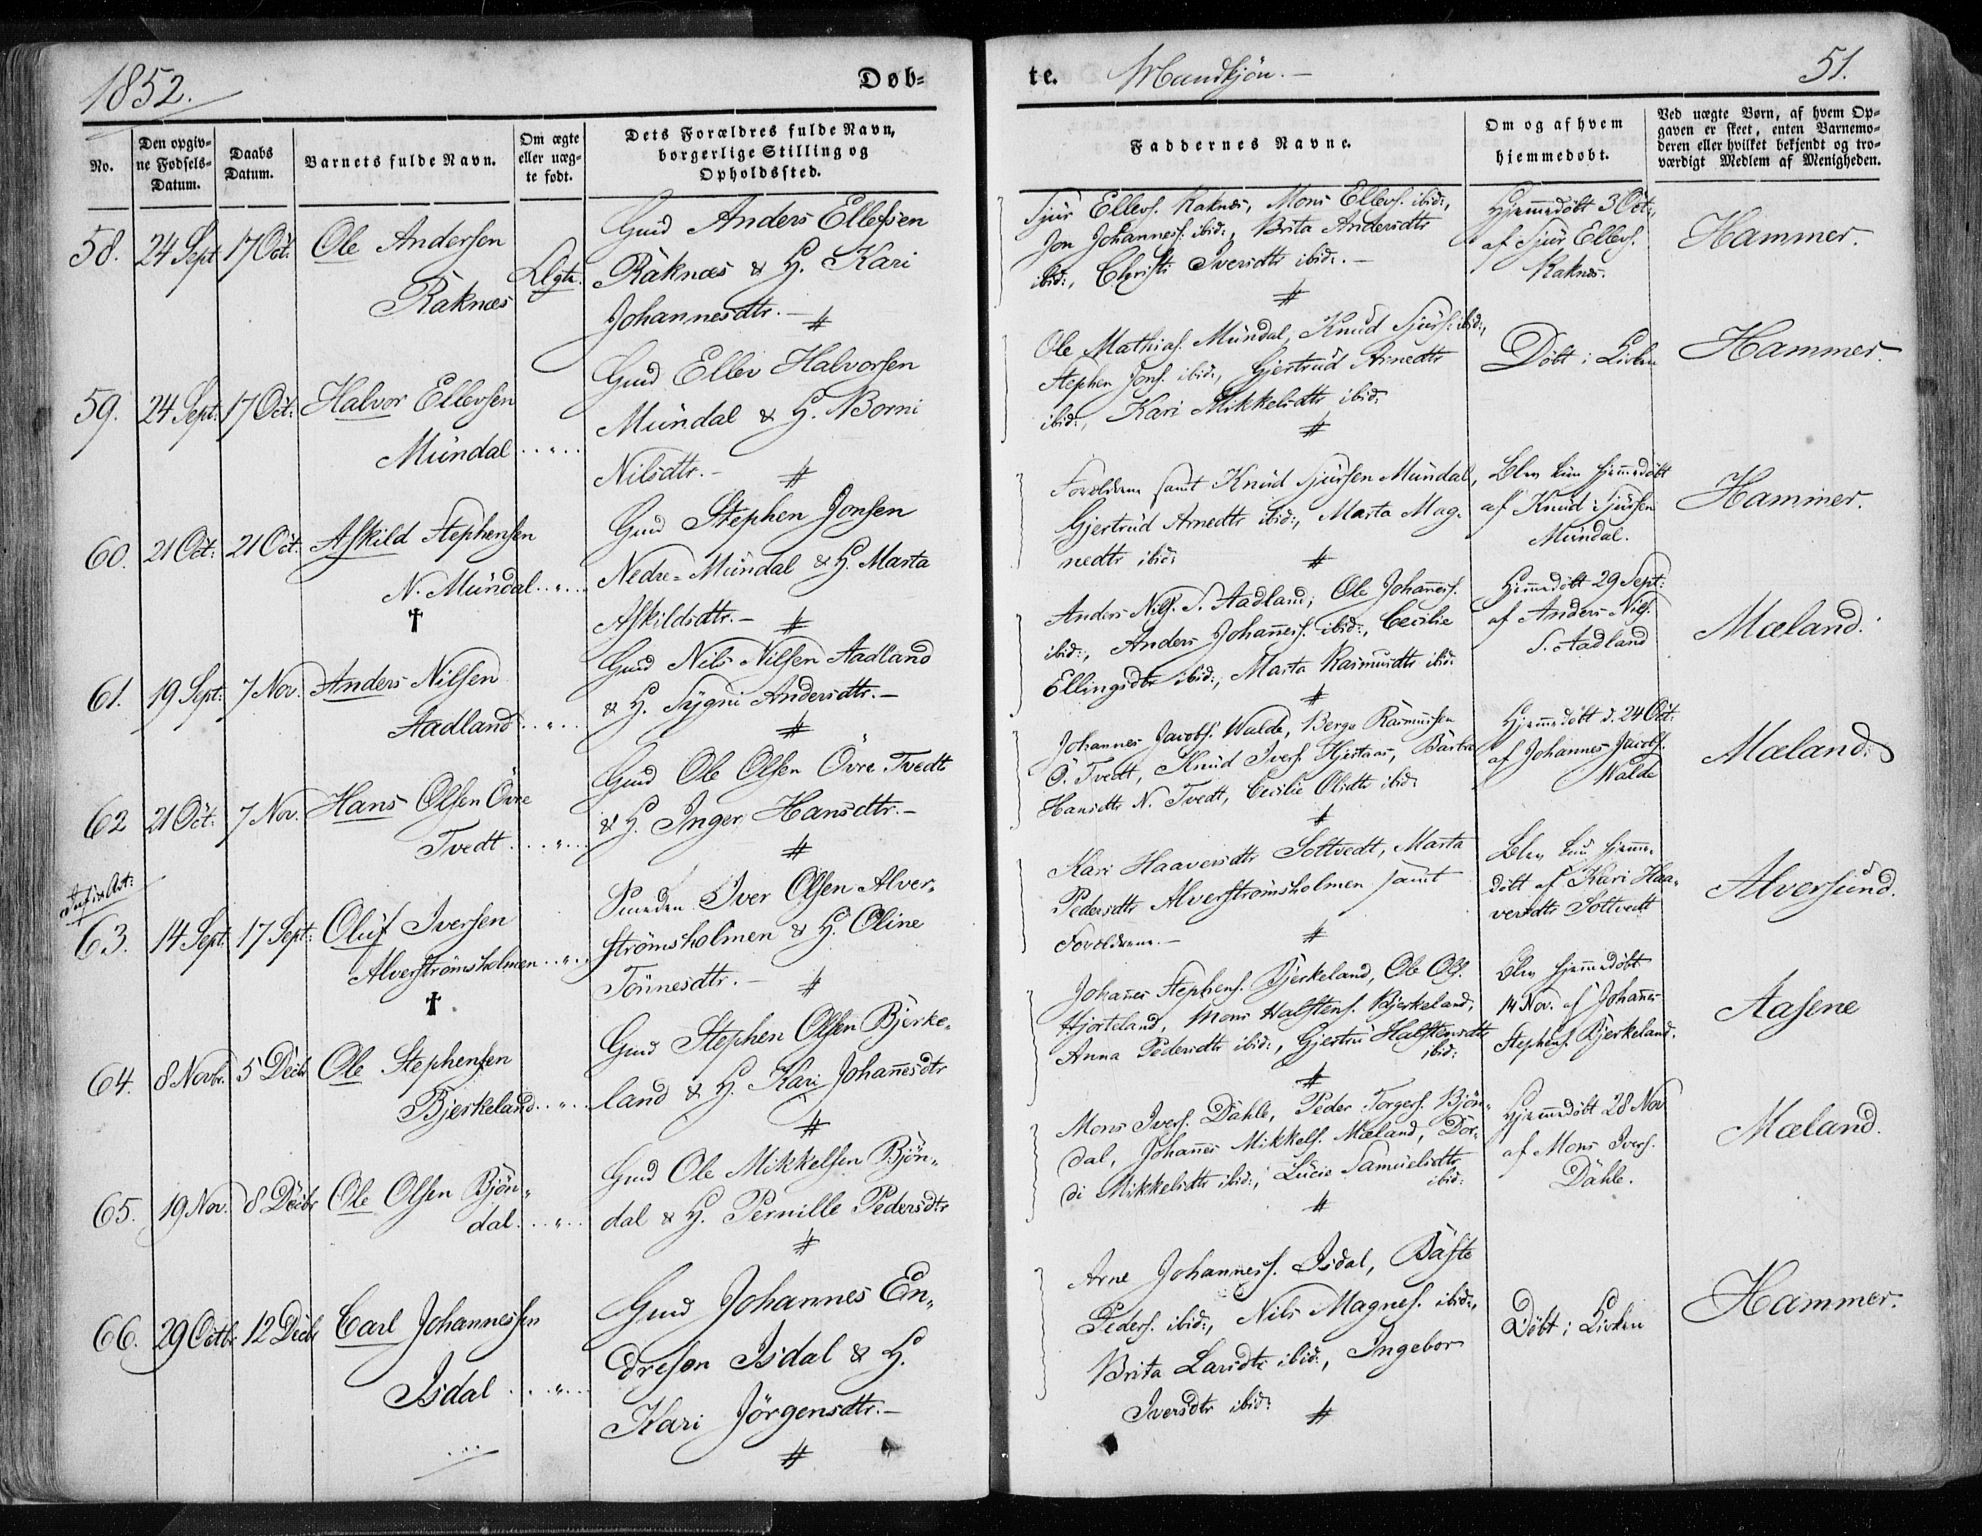 1852.
Døb-
te.
Mandkjön.
51.
No.
Den opgiv-
ne Fødsels-
Datum.
Daabs
Datum.
Barnets fulde Navn.
Om ægte
eller uæg-
te født.
Dets Forældres fulde Navn,
borgerlige Stilling og
Opholdssted.
Faddernes Navne.
Om og af hvem
hjemmedøbt.
Ved uægte Børn, af hvem Op-
gaven er skeet, enten Barnemo-
deren eller hvilket bekjendt og tro-
værdigt Medlem af Menigheden.
58. 24 Sept 17 Oct: Ole Andersen
Raknæs
Ægte.
Gmd Anders Ellefsen
Raknæs & H. Kari
Johannesdtr. –
Sjur Ellevs. Raknæs, Mons Ellevs. ibid:,
Jon Johanness. ibid:, Brita Andersdtr
ibid:, Christi Iversdtr ibid:. –
Hjemmedöbt 3 Oct:,
af Sjur Ellevs.
Raknæs.
Hammer.
59. 24 Sept: 17 Oct: Halvor Ellevsen
Mundal
Gmd Ellev Halvorsen
Mundal & H. Borni
Nilsdtr. –
Ole Mathias. Mundal, Knud Sjurs. ibid:,
Stephen Jons. ibid:, Gjertrud Arnedtr
ibid:, Kari Mikkelsdtr ibid:
Döbt i Kirken
Hammer.
60. 21 Oct: 21 Oct: Askild Stephensen
N. Mundal
†
Gmd Stephen Jonsen
Nedre-Mundal & H. Marta
Askildsdtr. –
Forældrene samt Knud Sjursen Mundal,
Gjertrud Arnedtr ibid:, Marta Mag-
nedtr ibid:
Blev kun hjemmedöbt
af Knud Sjursen
Mundal.
Hammer.
61. 19 Sept: 7 Nov. Anders Nilsen
Aadland
Gmd Nils Nilsen Aadland
& H. Sygni Andersdtr. –
Anders Nils. S. Aadland, Ole Johannes.
ibid:, Anders Johannes. ibid:, Cecilie
Ellingsdtr ibid:, Marta Rasmusdtr ibid:
Hjemmedöbt 29 Sept:
af Anders Nils.
S. Aadland
Mæland.
62 21 Oct: 7 Nov. Hans Olsen Övre
Tvedt
Gmd Ole Olsen Övre Tvedt
& H. Inger Hansdtr. –
Johannes Jacobs. Walde, Berge Rasmussen
Ö. Tvedt, Knud Ivers. Hjertaas, Barbra
Hansdtr N. Tvedt, Cecilie Olsdtr ibid:
Hjemmedöbt d. 24 Oct:
af Johannes Jacobs.
Walde
Mæland.
63. 14 Sept. 17 Sept: Oluf Iversen
Alverströmsholmen
†
Smeden Iver Olsen Alver-
strömsholmen & H. Oline
Tönnesdtr. –
Kari Haaversdtr Soltvedt, Marta
Pedersdtr Alverströmsholmen samt
Forældrene. –
Blev kun hjemme-
döbt af Kari Haa-
versdtr Soltvedt
Alversund.
64. 8 Novbr. 5 Decbr Ole Stephensen
Bjerkeland
Gmd Stephen Olsen Bjerke-
land & H. Kari Johannesdtr
Johannes Stephens. Bjerkeland, Ole Ols.
Hjorteland, Mons Halstens. Bjerkeland,
Anna Pedersdtr ibid:, Gjertru Halstensdtr
ibid:
Blev hjemmedöbt
14 Nov. af Johannes
Stephens. Bjerkeland.
Aasene
65. 19 Nov. 8 Decbr Ole Olsen Bjön-
dal
Gmd Ole Mikkelsen Bjön-
dal & H. Pernille Pedersdtr
Mons Ivers. Dahle, Peder Torgers. Bjön-
dal, Johannes Mikkels. Mæland, Dor-
di Mikkelsdtr ibid:, Lucie Samuelsdtr
ibid:
Hjemmedöbt 28 Nov
af Mons Ivers.
Dahle.
Mæland.
66. 29 Octbr 12 Decbr Carl Johannessen
Isdal
Gmd Johannes En-
dresen Isdal & H.
Kari Jörgensdtr. –
Arne Johanness. Isdal, Baste
Peders. ibid:, Nils Magnes. ibid:,
Brita Larsdtr ibid:, Ingebor
Iversdtr ibid:
Döbt i Kirken
Hammer.